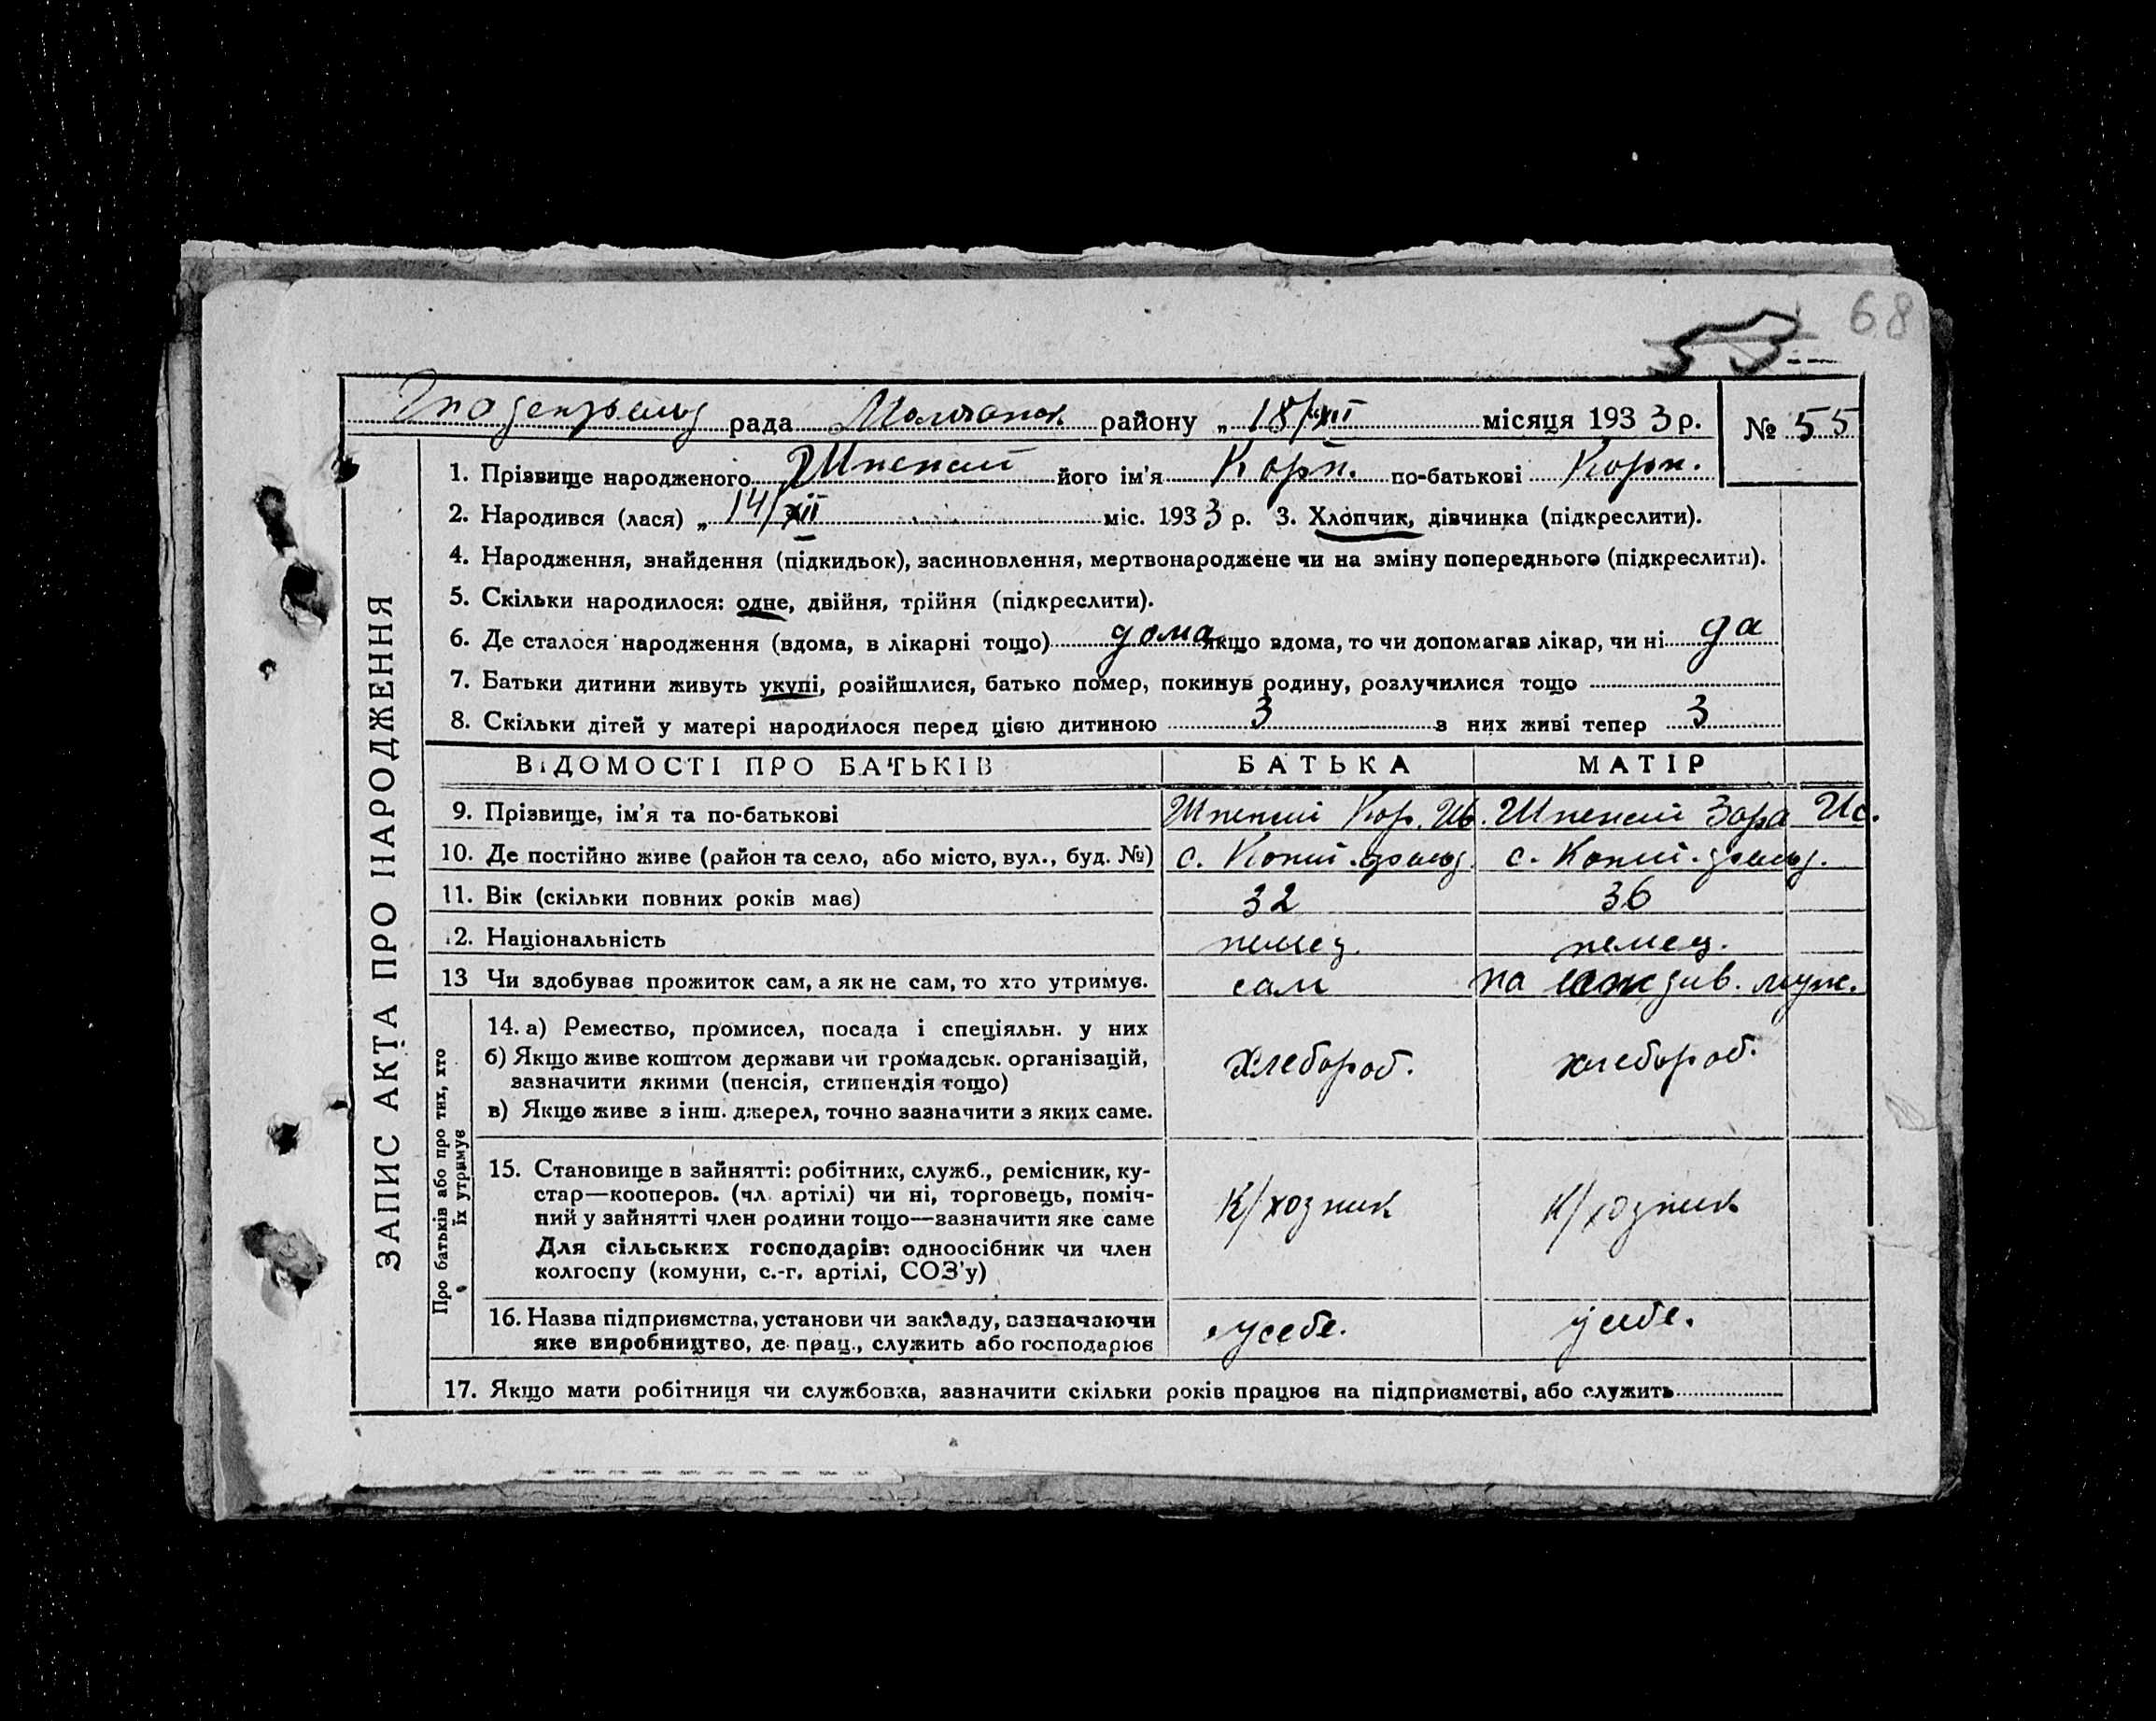 68
53
рада Молочан. району „ 18/XII місяця 1933 р. № 55
ЗАПИС АКТА ПРО НАРОДЖЕННЯ
1. Прізвище народженого його ім'я Корн. по-батькові Корн.
2. Народився (лася) „ 14/XII міс. 1933 р. 3. Хлопчик, дівчинка (підкреслити).
4. Народження, знайдення (підкидьок), засиновлення, мертвонароджене чи на зміну попереднього (підкреслити).
5. Скільки народилося: одне, двійня, трійня (підкреслити).
6. Де сталося народження (вдома, в лікарні тощо) дома якщо вдома, то чи допомагав лікар, чи ні да
7. Батьки дитини живуть укупі, розійшлися, батько помер, покинув родину, розлучилися тощо
8. Скільки дітей у матері народилося перед цією дитиною 3 з них живі тепер 3
ВІДОМОСТІ ПРО БАТЬКІВ БАТЬКА МАТІР
9. Прізвище, ім'я та по-батькові Кор. Ив. Зара Ис.
10. Де постійно живе (район та село, або місто, вул., буд. №) с. с.
11. Вік (скільки повних років має) 32 36
12. Національність немец. немец.
13 Чи здобуває прожиток сам, а як не сам, то хто утримує. сам на иждив. муж.
Про батьків або про тих, хто
їх утримує
14. а) Ремество, промисел, посада і спеціяльн. у них
б) Якщо живе коштом держави чи громадськ. організацій,
зазначити якими (пенсія, стипендія тощо) Хлебороб. хлебороб.
в) Якщо живе з інш. джерел, точно зазначити з яких саме.
15. Становище в зайнятті: робітник, служб., ремісник, ку-
стар—кооперов. (чл. артілі) чи ні, торговець, поміч-
ний у зайнятті член родини тощо—зазначити яке саме К/хозник К/хозник
Для сільських господарів: одноосібник чи член
колгоспу (комуни, с.-г. артілі, СОЗ'у)
16. Назва підприємства, установи чи закладу, зазначаючи
яке виробництво, де прац., служить або господарює у себе. у себе.
17. Якщо мати робітниця чи службовка, зазначити скільки років працює на підприємстві, або служить